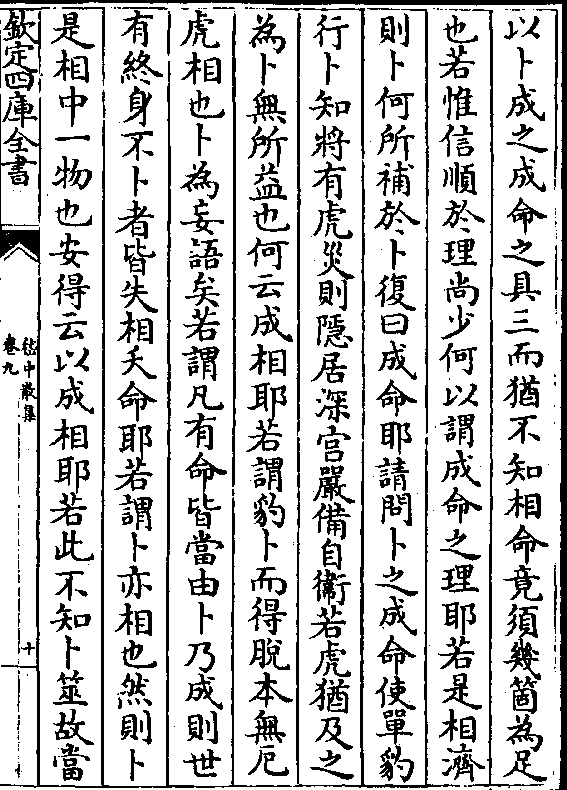 以卜成之成命之具三而猶不知相命竟須幾箇為足
也若惟信順於理尚少何以謂成命之理耶若是相濟
則卜何所補於卜復曰成命耶請問卜之成命使單豹
行卜知將有虎災則隱居深宮嚴備自衞若虎猶及之
為卜無所益也何云成相耶若謂豹卜而得脫本無厄
虎相也卜為妄語矣若謂凡有命皆當由卜乃成則世
有終身不卜者皆失相夭命耶若謂卜亦相也然則卜
是相中一物也安得云以成相耶若此不知卜筮故當
欽定四庫全書
嵇中散集
卷九
十